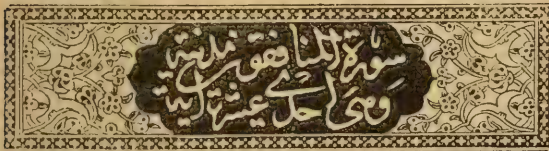 سورة المنافقون مدنية
وهي احدى عشرة آية